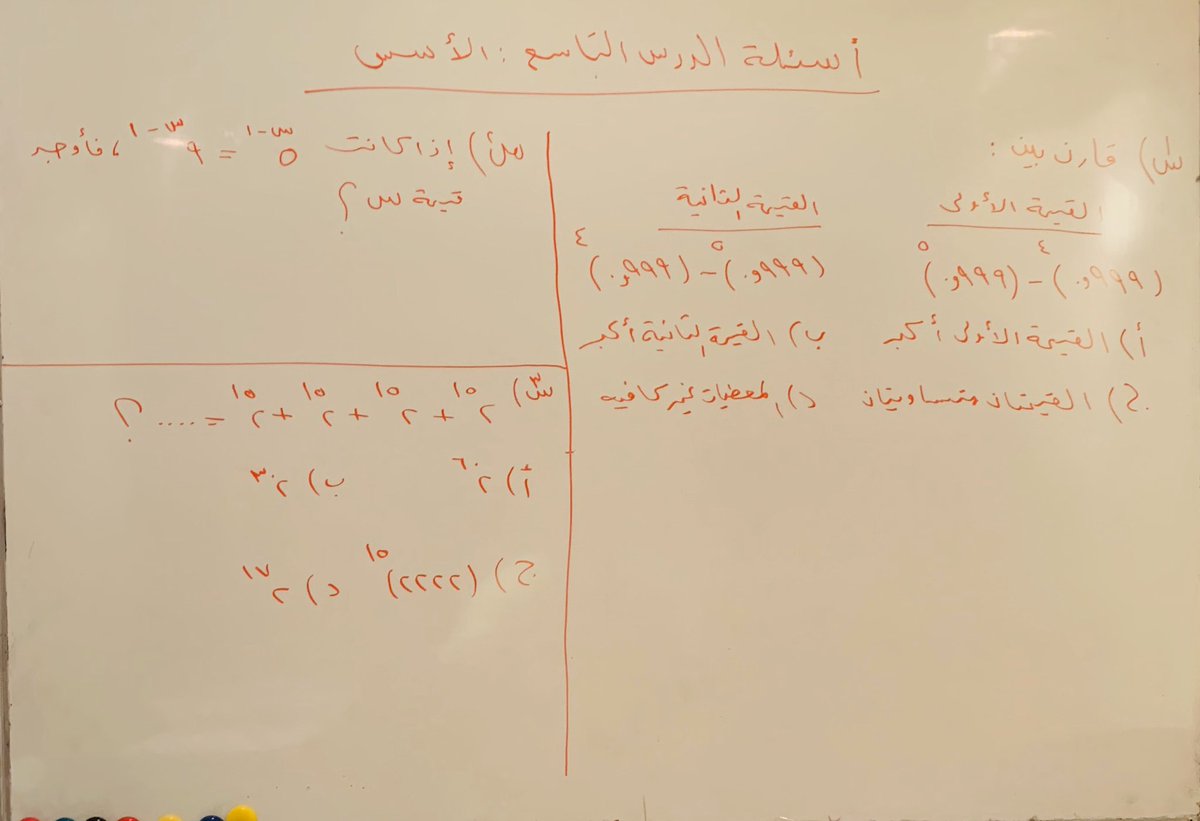 أسئلة الدرس التاسع : الأسس
س١) قارن بين :
القيمة الأولى
القيمة الثانية
(٠,٩٩٩)⁴ - (٠,٩٩٩)⁵
(٠,٩٩٩)⁵ - (٠,٩٩٩)⁴
أ) القيمة الأولى أكبر
ب) القيمة الثانية أكبر
ج) القيمتان متساويتان
د) المعطيات غير كافيه
س٢) إذا كانت ٥^(س-١) = ٩^(س-١) ، فأوجد
قيمة س ؟
س٣) ٢^١٥ + ٢^١٥ + ٢^١٥ + ٢^١٥ = .... ؟
أ) ٢^٦٠
ب) ٢^٣٠
ج) (٢٢٢٢)^١٥
د) ٢^١٧